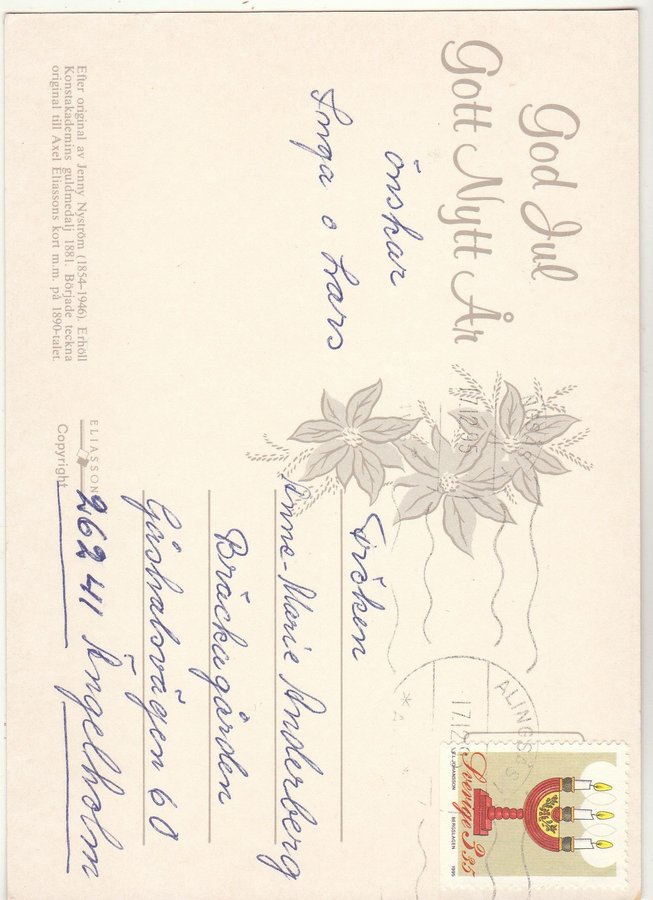 God Jul
Gott Nytt År
önskar
Inga o Lars
Efter original av Jenny Nyström (1854–1946). Erhöll
Konstakademins guldmedalj 1881. Började teckna
original till Axel Eliassons kort m.m. på 1890-talet.
ELIASSON
Copyright
Fröken
Anne-Marie Anderberg
Bräckagården
Gåshalsvägen 60
262 41 Ängelholm
17.12.95
ALINGSÅS
17.12.95
Sverige 3.35
JOHANSSON
BERGSLAGEN
1995